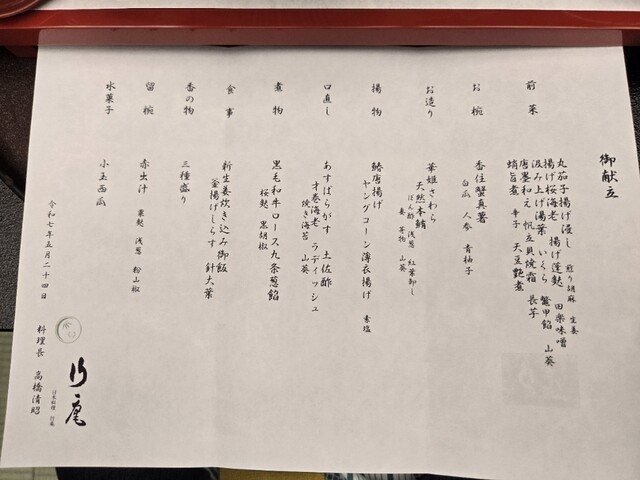 御献立
前菜
丸茄子揚げ浸し 煎り胡麻 生姜
揚げ桜海老 揚げ蓬麩 田楽味噌
汲み上げ湯葉 いくら 鼈甲餡 山葵
唐墨和え 帆立貝焼霜 長芋
蛸旨煮 辛子 天豆艶煮
お椀
香住蟹真薯
白瓜 人参 青柚子
お造り
華姫さわら
天然本鮪
ぽん酢 浅葱 紅葉卸し
妻 芽物 山葵
揚物
鰆唐揚げ
ヤングコーン薄衣揚げ 素塩
口直し
あすぱらがす 土佐酢
才巻海老 ラディッシュ
焼き海苔 山葵
煮物
黒毛和牛ロース九条葱餡
桜麩 黒胡椒
食事
新生姜炊き込み御飯
釜揚げしらす 針大葉
香の物
三種盛り
留椀
赤出汁 粟麩 浅葱 粉山椒
水菓子
小玉西瓜
令和七年五月二十四日
料理長 高橋清昭